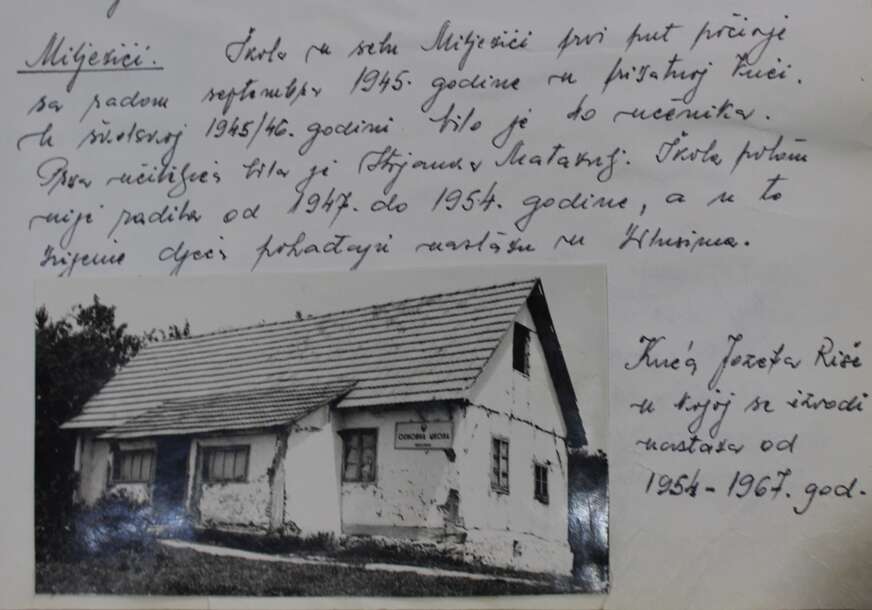 Miljevići. Škola u selu Miljevići prvi put počinje
sa radom septembra 1945. godine u privatnoj kući.
U školskoj 1945/46. godini bilo je do učenika.
Prva učiteljica bila je Matavulj. Škola potom
nije radila od 1947. do 1954. godine, a u to
vrijeme djeca pohađaju nastavu u
Kuća Jozefa
u kojoj se izvodi
nastava od
1954-1967. god.
OSNOVNA ŠKOLA